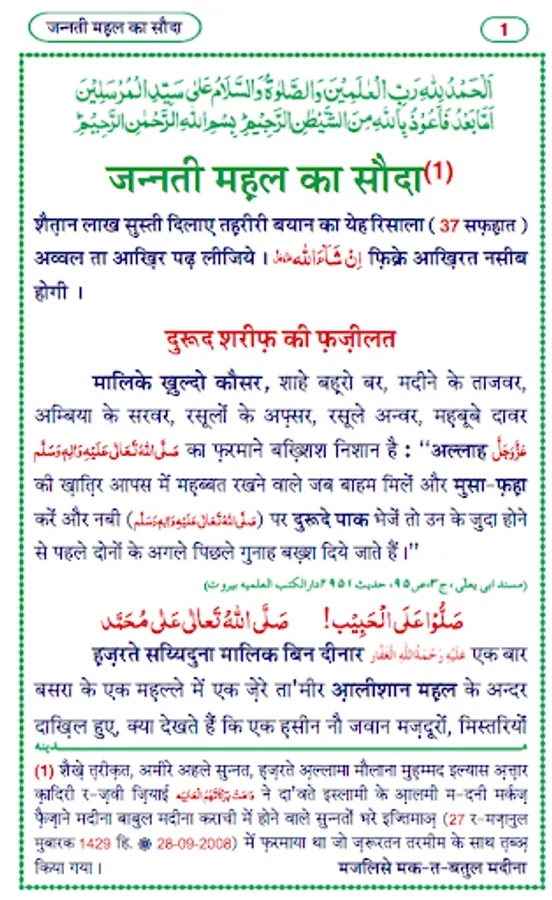 जन्नती महल का सौदा
1
اَلْحَمْدُ لِلّٰهِ رَبِّ الْعٰلَمِیْنَ وَالصَّلٰوةُ وَالسَّلَامُ عَلٰی سَیِّدِ الْمُرْسَلِیْنَ
اَمَّا بَعْدُ فَاَعُوْذُ بِاللّٰهِ مِنَ الشَّیْطٰنِ الرَّجِیْمِ بِسْمِ اللّٰهِ الرَّحْمٰنِ الرَّحِیْمِ
जन्नती मह़ल का सौदा(1)
शैत़ान लाख सुस्ती दिलाए तह़रीरी बयान का येह रिसाला ( 37 सफ़ह़ात )
अव्वल ता आख़िर पढ़ लीजिये । اِنْ شَآءَاللّٰه फ़िक्रे आख़िरत नसीब
होगी ।
दुरूद शरीफ़ की फ़ज़ीलत
मालिके ख़ुल्दो कौसर, शाहे बह़रो बर, मदीने के ताजवर,
अम्बिया के सरवर, रसूलों के अफ़्सर, रसूले अन्वर, मह़बूबे दावर
صَلَّى اللّٰهُ تَعَالٰى عَلَيْهِ وَاٰلِهٖ وَسَلَّم का फ़रमाने बख़्शिश निशान है : “अल्लाह عَزَّوَجَلَّ
की ख़ात़िर आपस में मह़ब्बत रखने वाले जब बाहम मिलें और मुसा-फ़ह़ा
करें और नबी (صَلَّى اللّٰهُ تَعَالٰى عَلَيْهِ وَاٰلِهٖ وَسَلَّم) पर दुरूदे पाक भेजें तो उन के जुदा होने
से पहले दोनों के अगले पिछले गुनाह बख़्श दिये जाते हैं ।”
(مسند ابی یعلی ، ج۳،ص۹۵، حدیث ۲۹۵۱ دارالکتب العلمیه بیروت)
صَلُّوْا عَلَى الْحَبِيْب! صَلَّى اللّٰهُ تَعَالٰى عَلٰى مُحَمَّد
ह़ज़रते सय्यिदुना मालिक बिन दीनार عَلَيْهِ رَحْمَةُ اللّٰهِ الْغَفَّار एक बार
बसरा के एक मह़ल्ले में एक ज़ेरे ता'मीर आ़लीशान मह़ल के अन्दर
दाख़िल हुए, क्या देखते हैं कि एक ह़सीन नौ जवान मज़दूरों, मिस्तरियों
مدینه
(1) शैख़े त़रीक़त, अमीरे अहले सुन्नत, ह़ज़रते अ़ल्लामा मौलाना मुह़म्मद इल्यास अ़त्त़ार
क़ादिरी र-ज़वी ज़ियाई دَامَتْ بَرَكَاتُهُمُ الْعَالِيَه ने दा'वते इस्लामी के आ़लमी म-दनी मर्कज़
फ़ैज़ाने मदीना बाबुल मदीना कराची में होने वाले सुन्नतों भरे इज्तिमाअ़ (27 र-मज़ानुल
मुबारक 1429 हि. 28-09-2008) में फ़रमाया था जो ज़रूरतन तरमीम के साथ त़ब्अ़
किया गया । मजलिसे मक-त-बतुल मदीना